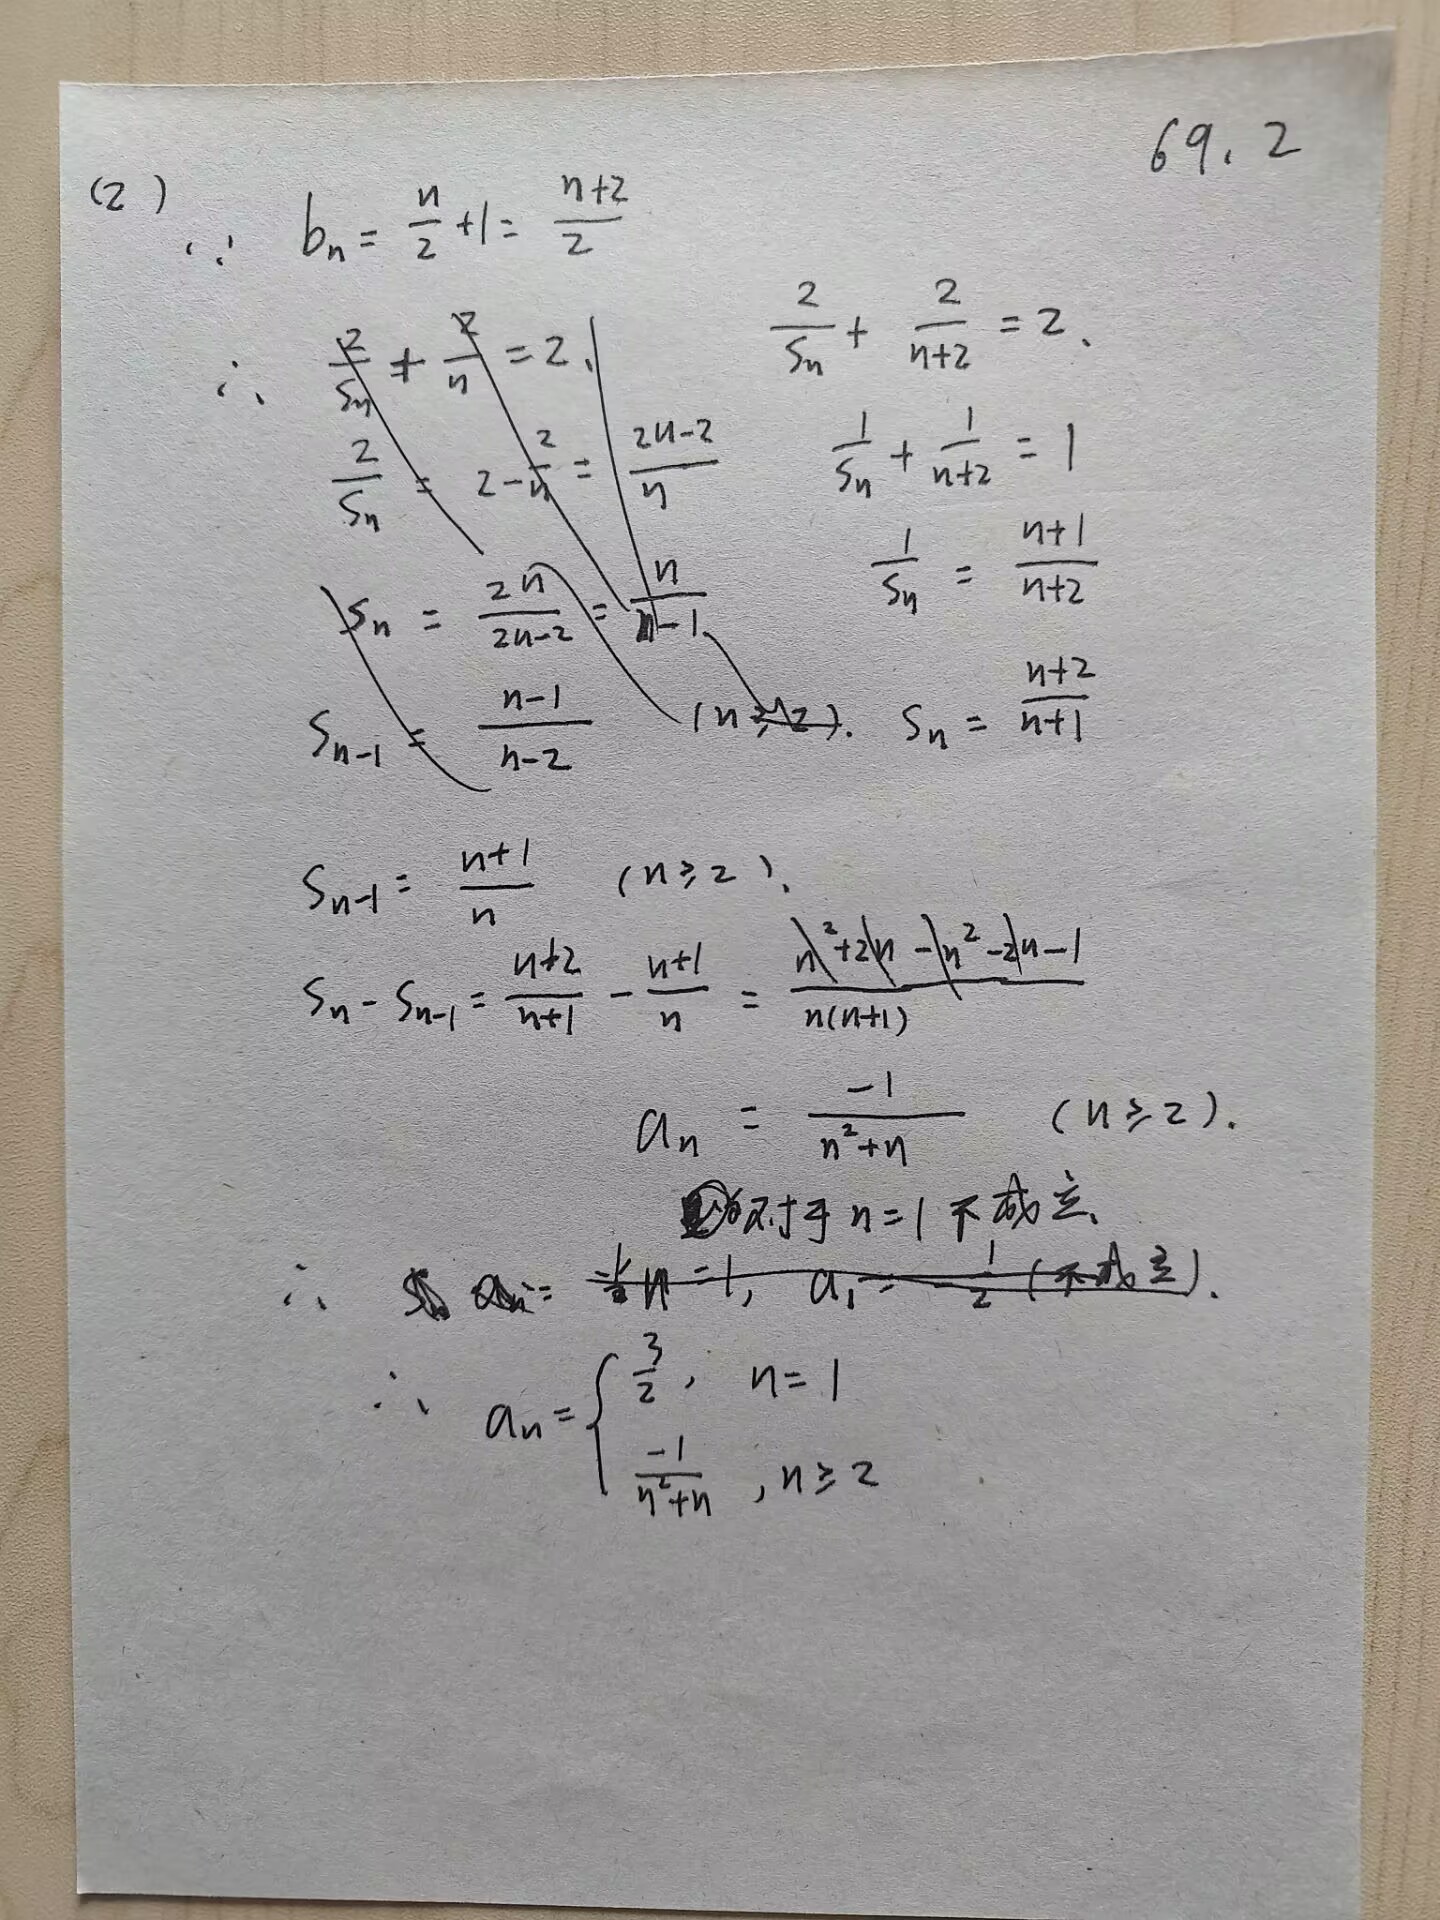 69.2
(2)
∵ bn = n/2 + 1 = (n+2)/2
∴ 2/Sn + 2/n = 2.
2/Sn = 2 - 2/n = (2n-2)/n
Sn = 2n/(2n-2) = n/(n-1)
Sn-1 = (n-1)/(n-2) (n≥2).
2/Sn + 2/(n+2) = 2.
1/Sn + 1/(n+2) = 1
1/Sn = (n+1)/(n+2)
Sn = (n+2)/(n+1)
Sn-1 = (n+1)/n (n≥2).
Sn - Sn-1 = (n+2)/(n+1) - (n+1)/n = (n²+2n-n²-2n-1)/(n(n+1))
an = -1/(n²+n) (n≥2).
对于n=1不成立.
∴ an = n=1, a1 = -1/2 (不成立).
∴ an = { 3/2, n=1
-1/(n²+n), n≥2